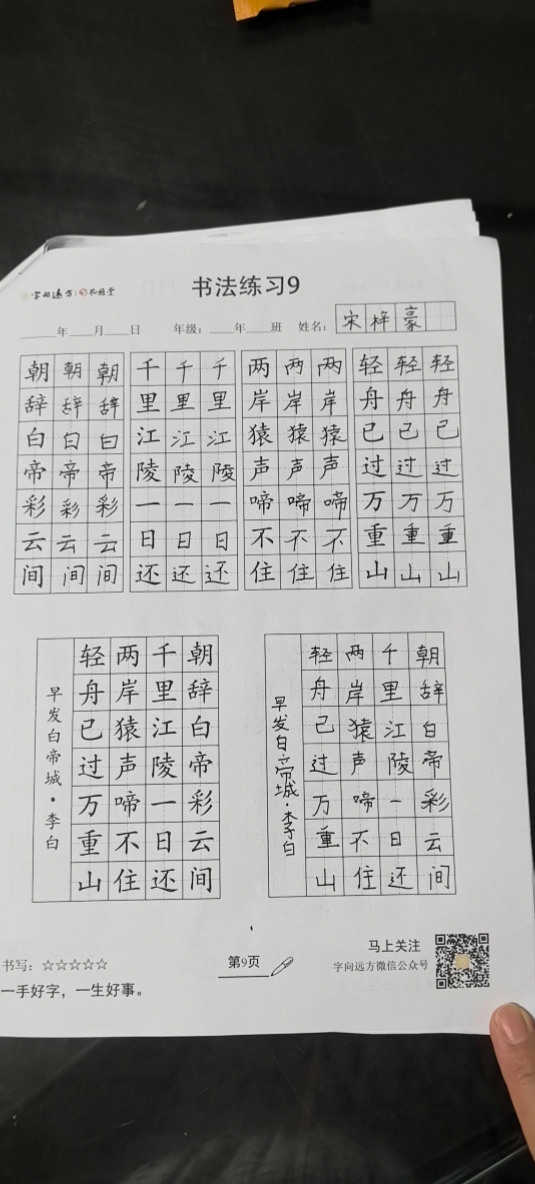 字向远方
书法练习9
____年____月____日 年级：____年____班 姓名：宋梓豪
朝朝朝 千千千 两两两 轻轻轻
辞辞辞 里里里 岸岸岸 舟舟舟
白白白 江江江 猿猿猿 已已已
帝帝帝 陵陵陵 声声声 过过过
彩彩彩 一一一 啼啼啼 万万万
云云云 日日日 不不不 重重重
间间间 还还还 住住住 山山山
朝辞白帝彩云间
千里江陵一日还
两岸猿声啼不住
轻舟已过万重山
早发白帝城·李白
朝辞白帝彩云间
千里江陵一日还
两岸猿声啼不住
轻舟已过万重山
早发白帝城·李白
书写：☆☆☆☆☆
一手好字，一生好事。
第9页
马上关注
字向远方微信公众号